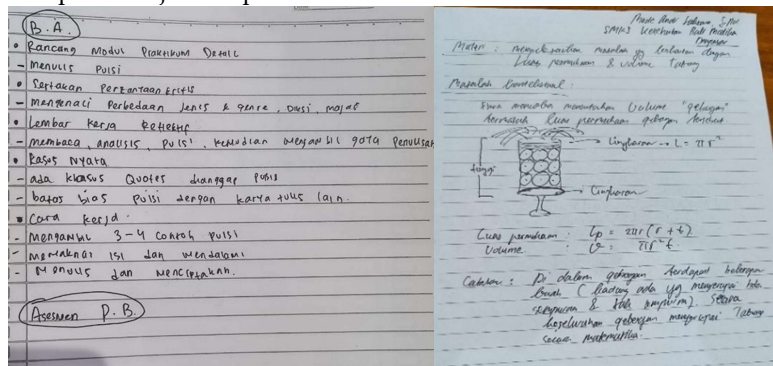 B.A.
• Rancang Modul Praktikum Detail
- Menulis Puisi
• Sertakan Pertanyaan kritis
- Mengenali Perbedaan Jenis & genre, Diksi, majas
• Lembar Kerja Reflektif
- membaca, analisis, puisi, kemudian mengambil gaya penulisan
• Kasus Nyata
- ada khasus Quotes dianggap puisi
- batas bias puisi dengan karya tulis lain.
• Cara kerja.
- Mengambil 3-4 contoh puisi
- Memaknai isi dan mendalami
- Menulis dan menciptakan.
Asesmen P.B.
SMKS Kesehatan Bali
Materi : menyelesaikan masalah yg berkaitan dengan
Luas permukaan & volume Tabung
Masalah kontekstual :
Siswa menentukan Volume "gebogan"
termasuk luas permukaan gebogan tersebut
Lingkaran → L = πr²
tinggi
Lingkaran
Luas permukaan : Lp = 2πr(r + t)
Volume : V = πr²t.
Catatan : Di dalam gebogan terdapat
buah (kadang ada yg menyerupai bola
sempurna & tdk). Secara
keseluruhan gebogan menyerupai Tabung
secara matematika.